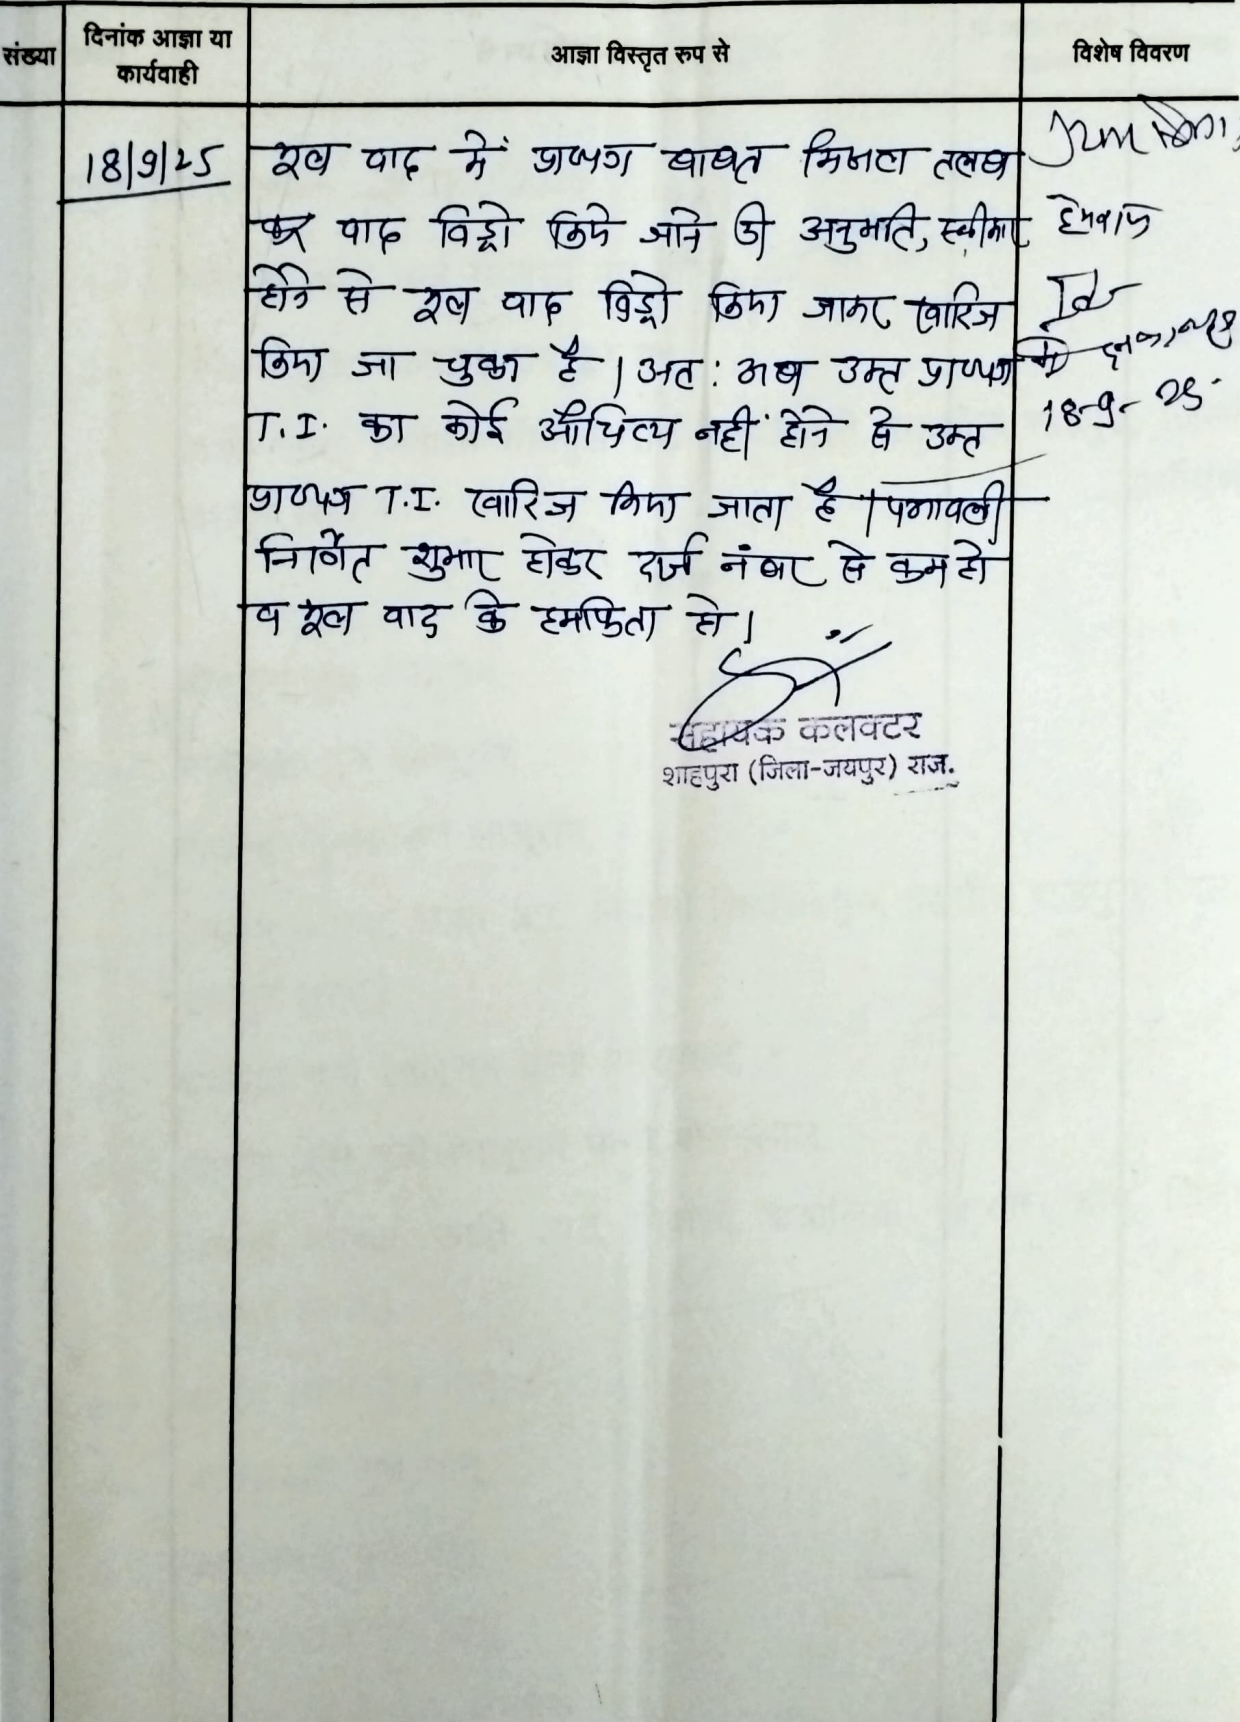 संख्या
दिनांक आज्ञा या
कार्यवाही
आज्ञा विस्तृत रुप से
विशेष विवरण
18/9/25
मूल वाद में प्रा०पत्र बाबत मिसल तलब
कर वाद विड्रो किये जाने की अनुमति, स्वीकार
होने से मूल वाद विड्रो किया जाकर खारिज
किया जा चुका है। अत: अब उक्त प्रा०पत्र
T.I. का कोई औचित्य नहीं होने से उक्त
प्रा०पत्र T.I. खारिज किया जाता है। पत्रावली
निर्णित शुमार होकर दर्ज नंबर से कम हो
व मूल वाद के हमफिता हो।
18-9-25
सहायक कलक्टर
शाहपुरा (जिला-जयपुर) राज.